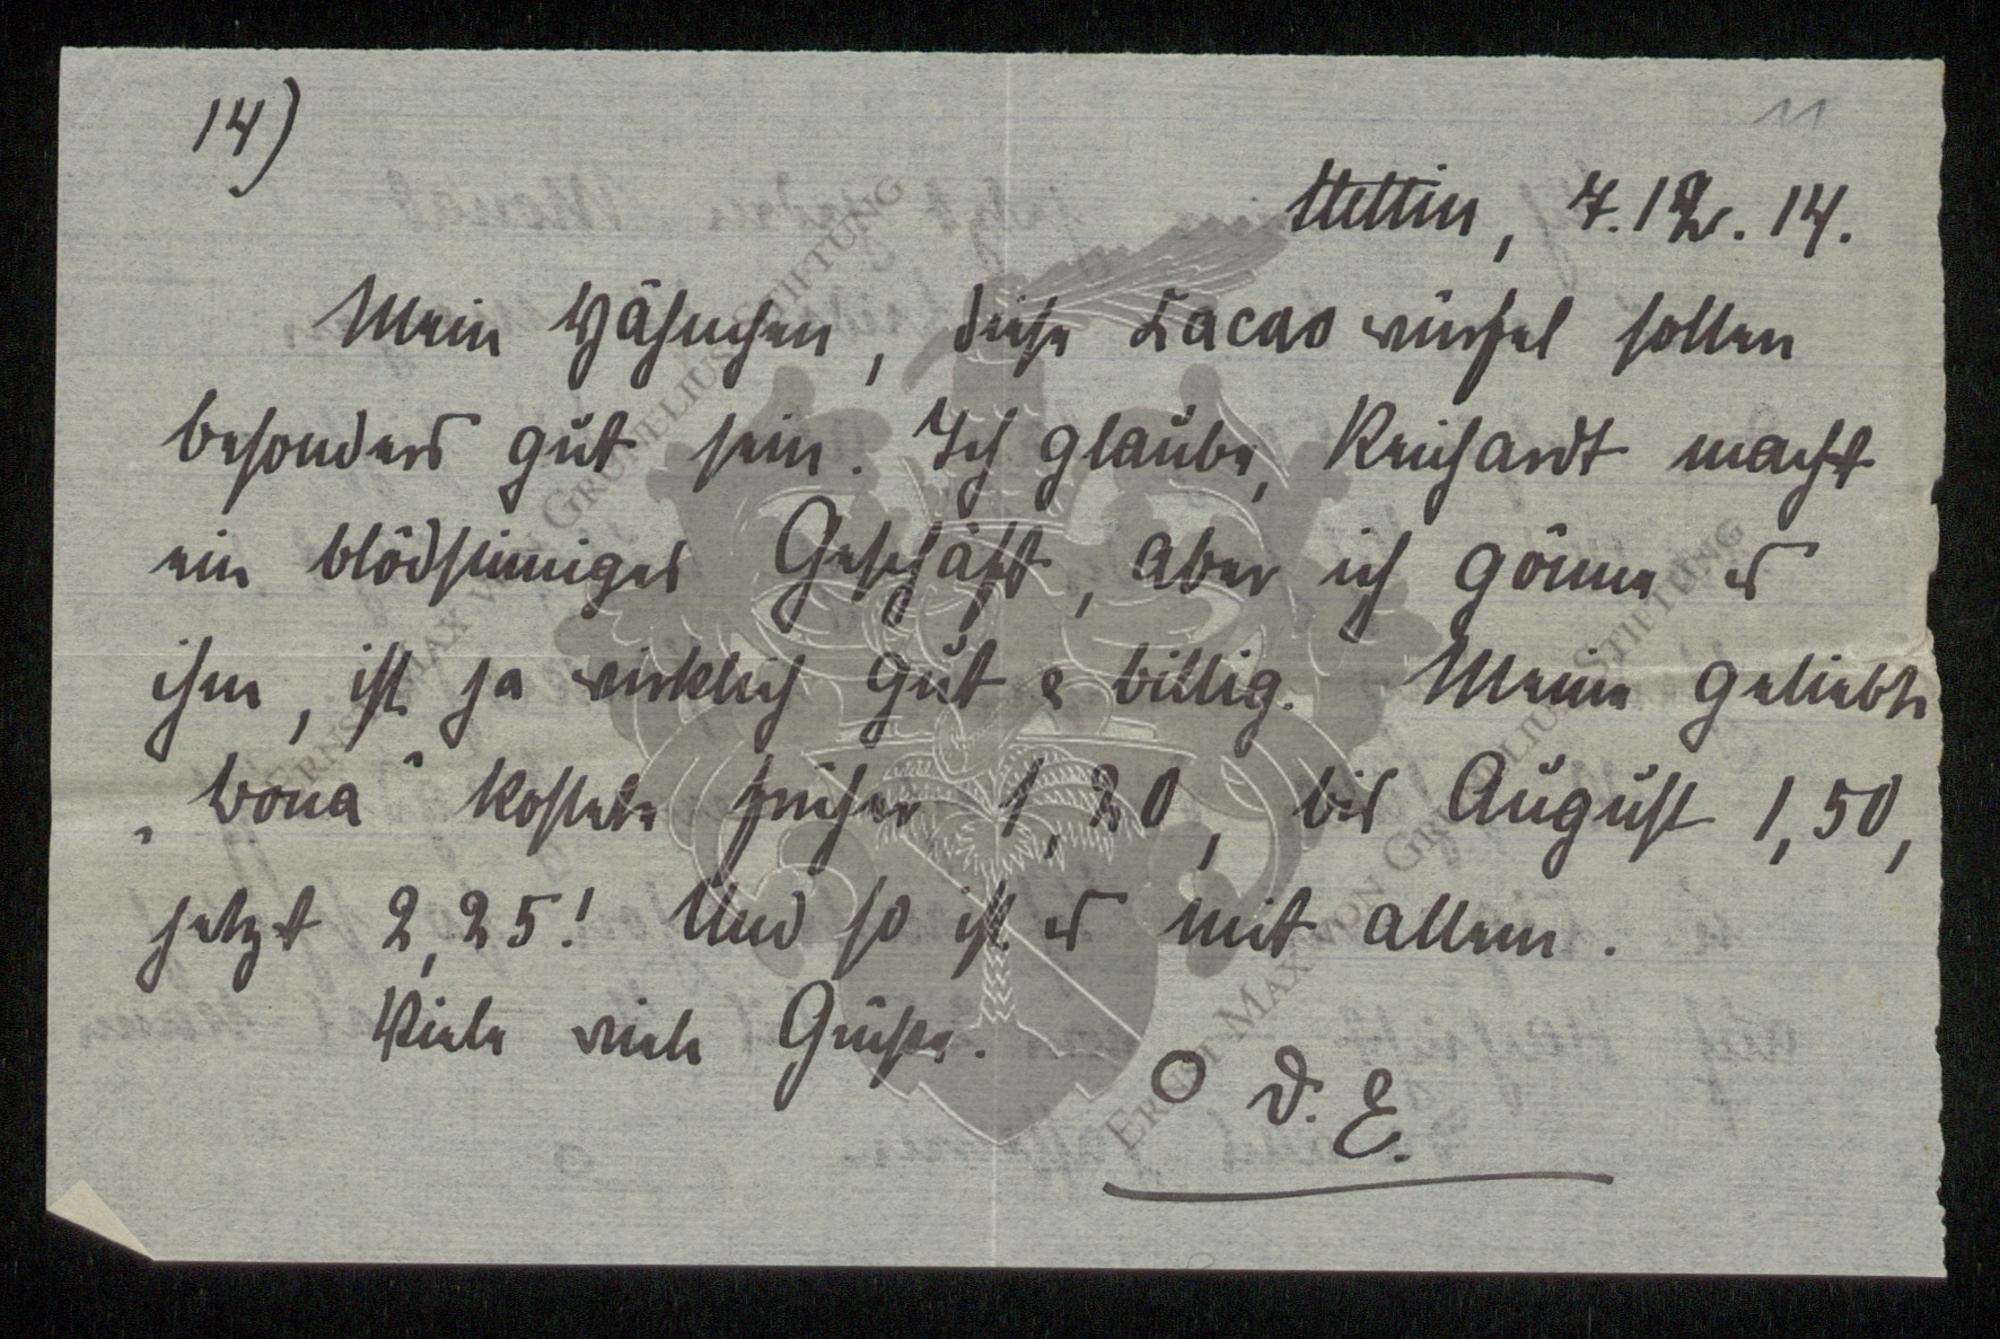 14)
11
Stettin, 7. 12. 14.
Mein Hähnchen, diese Cacaowürfel sollen
besonders gut sein. Ich glaube, Reichardt macht
ein blödsinniges Geschäft, aber ich gönne es
ihm, ist ja wirklich gut & billig. Meine geliebte
"Bona" kostete früher 1,20, bis August 1,50,
jetzt 2,25! Und so ist es mit allem.
Viele viele Grüße.
O D. E.
ERNST MAX VON GRUNELIUS STIFTUNG
ERNST MAX VON GRUNELIUS STIFTUNG